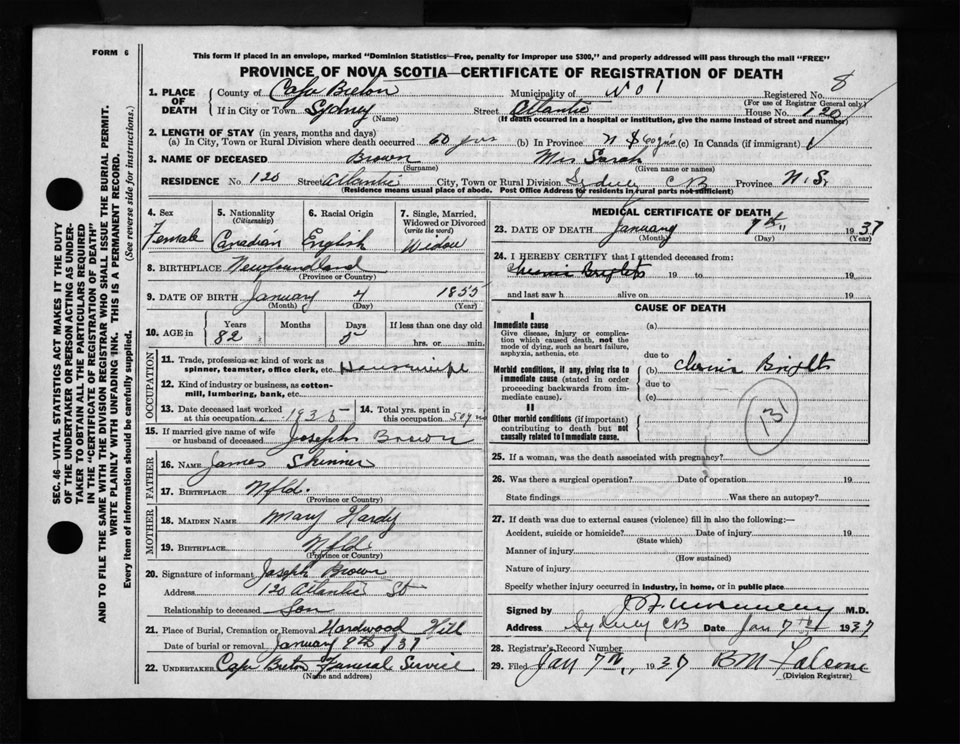 FORM 6
This form if placed in an envelope, marked "Dominion Statistics—Free, penalty for improper use $300," and properly addressed will pass through the mail "FREE"
PROVINCE OF NOVA SCOTIA—CERTIFICATE OF REGISTRATION OF DEATH
SEC. 46—VITAL STATISTICS ACT MAKES IT THE DUTY
OF THE UNDERTAKER OR PERSON ACTING AS UNDER-
TAKER TO OBTAIN ALL THE PARTICULARS REQUIRED
IN THE "CERTIFICATE OF REGISTRATION OF DEATH"
AND TO FILE THE SAME WITH THE DIVISION REGISTRAR WHO SHALL ISSUE THE BURIAL PERMIT.
WRITE PLAINLY WITH UNFADING INK. THIS IS A PERMANENT RECORD.
Every item of information should be carefully supplied. (See reverse side for instructions.)
1. PLACE OF DEATH County of Cape Breton Municipality of No 1 Registered No. 8
(For use of Registrar General only)
If in City or Town Sydney Street Atlantic House No. 120
(Name) (If death occurred in a hospital or institution, give the name instead of street and number)
2. LENGTH OF STAY (in years, months and days)
(a) In City, Town or Rural Division where death occurred 60 yrs (b) In Province N S 60 yrs (c) In Canada (if immigrant)
3. NAME OF DECEASED Brown Mrs Sarah
(Surname) (Given name or names)
RESIDENCE No. 120 Street Atlantic City, Town or Rural Division Sydney CB Province N.S.
(Residence means usual place of abode. Post Office Address for residents in rural parts not sufficient)
4. Sex Female
5. Nationality (Citizenship) Canadian
6. Racial Origin English
7. Single, Married, Widowed or Divorced (write the word) Widow
8. BIRTHPLACE Newfoundland
(Province or Country)
9. DATE OF BIRTH January 4 1855
(Month) (Day) (Year)
10. AGE in Years 82 Months Days 5 If less than one day old hrs. or min.
OCCUPATION
11. Trade, profession or kind of work as spinner, teamster, office clerk, etc. Housewife
12. Kind of industry or business, as cotton-mill, lumbering, bank, etc.
13. Date deceased last worked at this occupation 1935
14. Total yrs. spent in this occupation 50 yrs
15. If married give name of wife or husband of deceased Joseph Brown
FATHER
16. NAME James Skinner
17. BIRTHPLACE Nfld.
(Province or Country)
MOTHER
18. MAIDEN NAME Mary Hardy
19. BIRTHPLACE Nfld
(Province or Country)
20. Signature of informant Joseph Brown
Address 120 Atlantic St
Relationship to deceased Son
21. Place of Burial, Cremation or Removal Hardwood Hill
Date of burial or removal January 9th /37
22. UNDERTAKER Cape Breton Funeral Service
(Name and address)
MEDICAL CERTIFICATE OF DEATH
23. DATE OF DEATH January 7th 1937
(Month) (Day) (Year)
24. I HEREBY CERTIFY that I attended deceased from:
19 to 19
and last saw h alive on 19
CAUSE OF DEATH
I
Immediate cause
Give disease, injury or complication which caused death, not the mode of dying, such as heart failure, asphyxia, asthenia, etc
(a)
due to
Morbid conditions, if any, giving rise to immediate cause (stated in order proceeding backwards from immediate cause).
(b) Chronic Brights
due to
(c)
131
II
Other morbid conditions (if important) contributing to death but not causally related to immediate cause.
25. If a woman, was the death associated with pregnancy?
26. Was there a surgical operation? Date of operation 19
State findings Was there an autopsy?
27. If death was due to external causes (violence) fill in also the following:—
Accident, suicide or homicide? Date of injury 19
(State which)
Manner of injury
(How sustained)
Nature of injury
Specify whether injury occurred in industry, in home, or in public place
Signed by M.D.
Address Sydney CB Date Jan 7th 1937
28. Registrar's Record Number
29. Filed Jan 7th, 1937 B M
(Division Registrar)